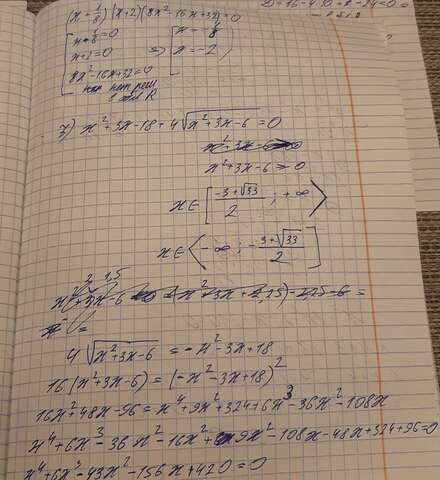 (x - 1/8)(x+2)(8x² - 16x + 32) = 0
x - 1/8 = 0
x + 2 = 0 => x = -2
8x² - 16x + 32 = 0
7) x² + 3x - 18 + 4√(x² + 3x - 6) = 0
x² + 3x - 6 ≥ 0
x ∈ [(-3 + √33)/2 ; +∞>
x ∈ <-∞ ; -(3 + √33)/2]
4√(x² + 3x - 6) = -x² - 3x + 18
16(x² + 3x - 6) = (-x² - 3x + 18)²
16x² + 48x - 96 = x⁴ + 9x² + 324 + 6x³ - 36x² - 108x
x⁴ + 6x³ - 36x² - 16x² + 9x² - 108x - 48x + 324 + 96 = 0
x⁴ + 6x³ - 43x² - 156x + 420 = 0